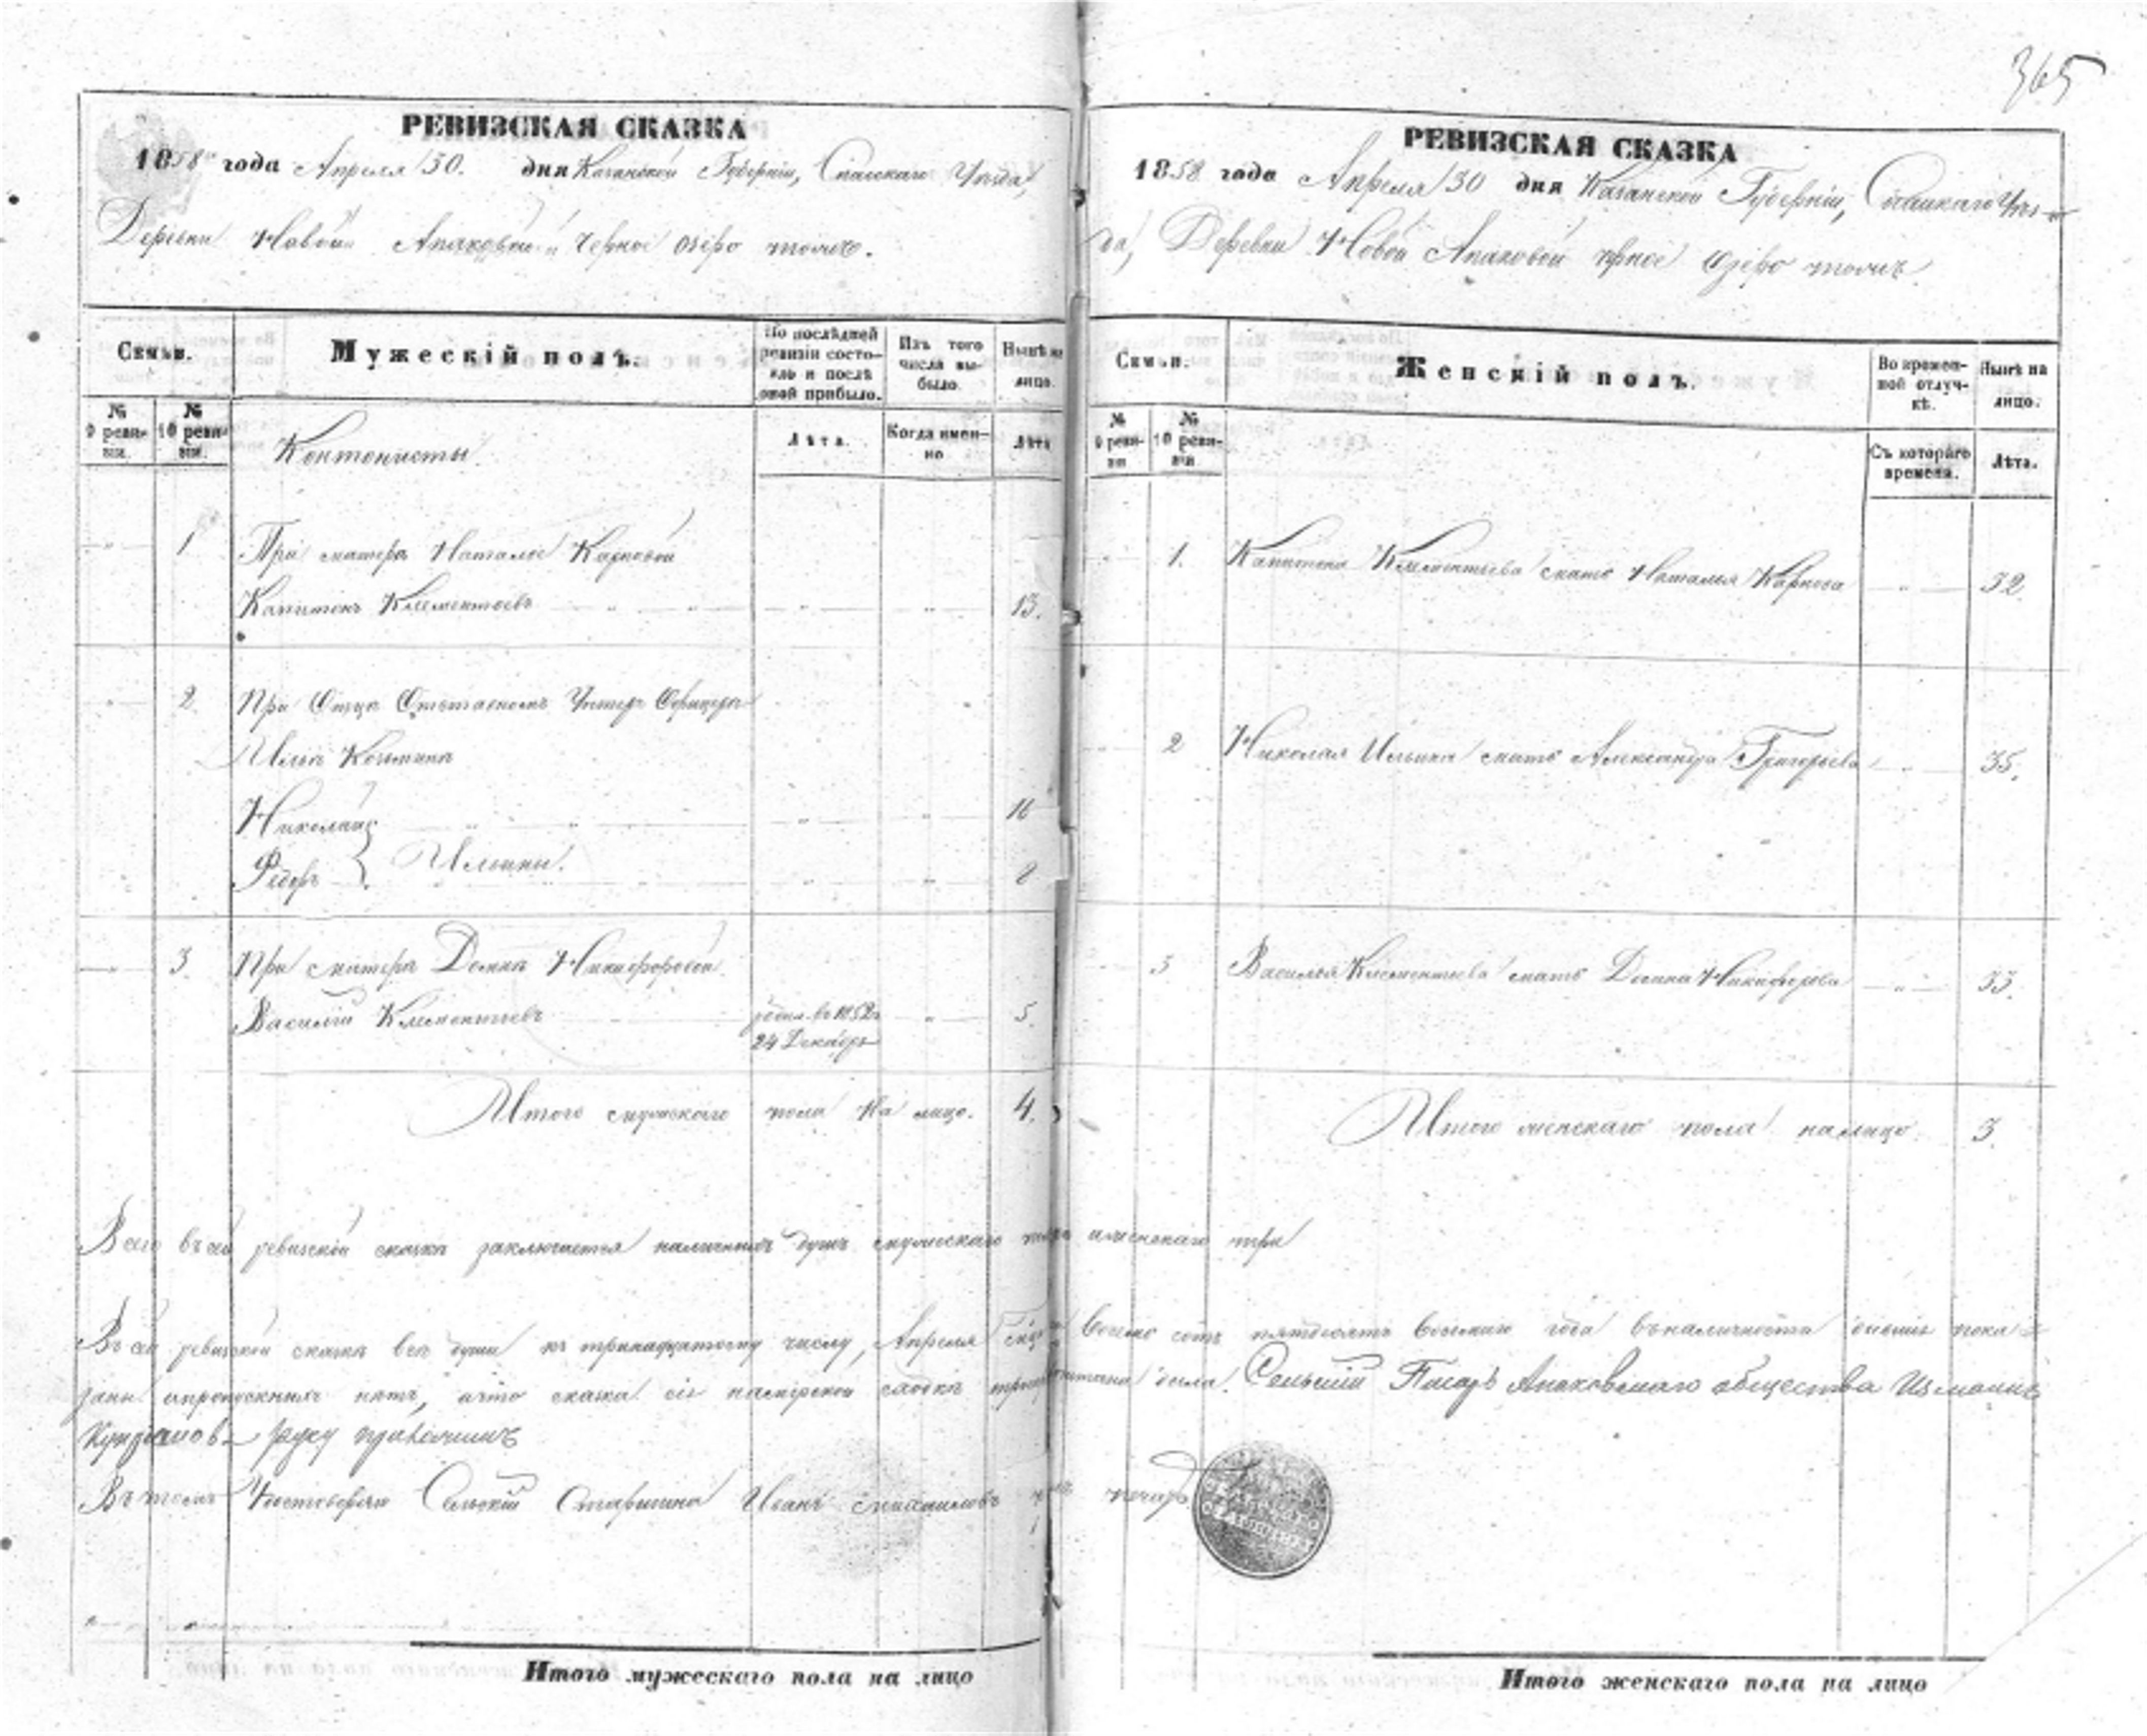 365
РЕВИЗСКАЯ СКАЗКА
1858 года Апреля 30. дня Казанской Губерніи, Спасскаго Уѣзда,
Деревни Новой Апаковой и Черное озеро тожъ.
Семьи.
Мужескій полъ.
По послѣдней ревизіи состояло и послѣ оной прибыло.
Изъ того числа выбыло.
Нынѣ на лицо.
№ 9 ревизіи.
№ 10 ревизіи.
Кантонисты
Лѣта.
Когда именно
Лѣта
1 При матери Наталье Карповой
Капитонъ Клементьевъ 13.
2. При Отцѣ Отставномъ Унтеръ Офицерѣ
Ильѣ Козьминѣ
Николай 16
Федоръ } Ильины. 8
3. При матери Домнѣ Никифоровой
Василій Клементьевъ родил. въ 1852 5.
24 Декабря
Итого мужескаго пола на лицо. 4.
РЕВИЗСКАЯ СКАЗКА
1858 года Апреля 30 дня Казанской Губерніи, Спасскаго Уѣз-
да, Деревни Новой Апаковой Черное Озеро тожъ
Семьи.
Женскій полъ.
Во временной отлучкѣ.
Нынѣ на лицо.
№ 9 ревизіи
№ 10 ревизіи
Съ котораго времени.
Лѣта.
1. Капитона Клементьева мать Наталья Карпова 32.
2 Николая Ильина мать Александра Григорьева 35.
3 Василья Клементьева мать Домна Никифорова 33.
Итого женскаго пола на лицо. 3.
Всего въ сей ревизской сказке заключается наличныхъ душъ мужескаго женскаго три
Въ сей ревизской сказке все души къ тринадцатому числу, Апреля восемь сотъ пятдесятъ восьмаго года въ наличности бывшіе пока-
заны ипропускныхъ нетъ, ичто сказка сія на мирской сходке была. Сельскій Писарь Апаковскаго общества Измаилъ
руку приложилъ
Въ томъ Удостоверяю Сельскій Старшина Иванъ Михаиловъ печать
Итого мужескаго пола на лицо
Итого женскаго пола на лицо